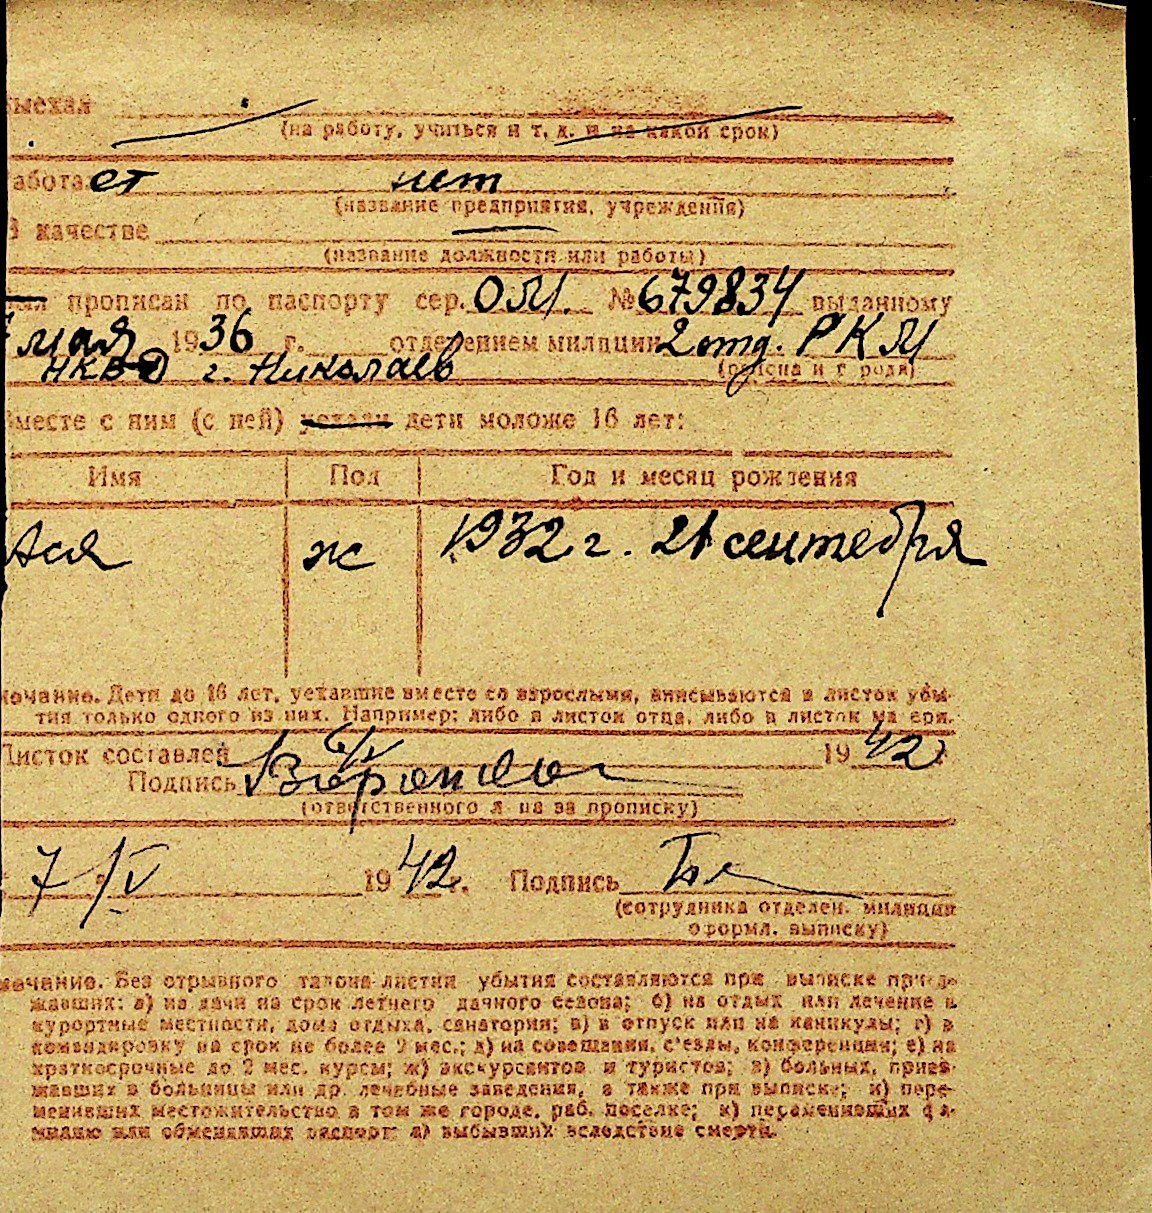 ыехал
(на работу, учиться и т. д. и на какой срок)
аботает нет
(название предприятия, учреждения)
В качестве
(название должности или работы)
прописан по паспорту сер. ОМ. № 679834 выданному
мая 1936 г. отделением милиции 2 отд. РКМ
НКВД г. Николаев
Вместе с ним (с ней) уехали дети моложе 16 лет:
Имя Пол Год и месяц рождения
Ася ж 1932 г. 21 сентября
мечание. Дети до 16 лет, уехавшие вместе со взрослыми, вписываются в листок убы-
тия только одного из них. Например: либо в листок отца, либо в листок матери.
Листок составлен 6/V 1942
Подпись
(ответственного л-ца за прописку)
7/V 1942 г. Подпись
(сотрудника отделен. милиции
оформл. выписку)
мечание. Без отрывного талона листки убытия составляются при выписке приез-
жавших: а) на дачи на срок летнего дачного сезона; б) на отдых или лечение в
курортные местности, дома отдыха, санатории; в) в отпуск или на каникулы; г) в
командировку на срок не более 2 мес.; д) на совещания, с'езды, конференции; е) на
краткосрочные до 2 мес. курсы; ж) экскурсантов и туристов; з) больных, приез-
жавших в больницы или др. лечебные заведения, а также при выписке; и) пере-
менивших местожительство в том же городе, раб. поселке; к) переменивших фа-
милию или обменявших паспорт; л) выбывших вследствие смерти.